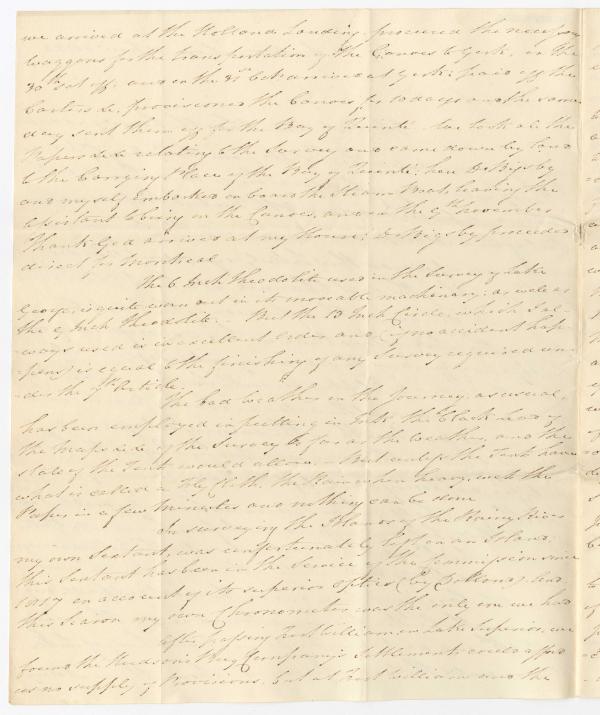 we arrived at the Holland Landing, procured the necessary
waggons for the transportation of the Canoes to York: on the
30th set off, and on the 31st Oct arrived at York: paid off the
Carters &c, provisioned the Canoes for 10 days and the same
day sent them off for the Bay of Quinté. We took all the
Papers &c &c relating to the Survey and came down by land
to the Carrying Place of the Bay of Quinté: here Dr Bigsby
and myself embarked on board the Steam Boat, leaving the
assistant to bring on the Canoes, and on the 9th November
Thank God arrived at my House; Dr Bigsby proceeded
direct for Montreal
The 6 Inch Theodolite used in the Survey of Lake
George, is quite worn out in its moveable machinery: as well as
the 9 Inch Theodolite. But the 10 Inch Circle, which I al-
ways used is in excellent order and (if no accident hap-
pens) is equal to the finishing of any Survey required un-
der the 7th Article.
The bad weather in the Journey, as usual,
has been employed in putting in Ink the black lead of
the Maps &c &c of the Survey so far as the weather, and the
state of the Tent would allow. But unless the Tent have
what is called a Fly Cloth, the Rain when heavy, wets the
Paper in a few minutes and nothing can be done
In surveying the Islands of the Rainy River
my own Sextant, was unfortunately lost on an Island;
this Sextant has been in the Service of the Commission since
1817 on account of its superior optics (by Dollond). And
this Season my own Chronometer was the only one we had
After passing Fort William on Lake Superior, we
found the Hudsons Bay Company's Settlements could afford
us no supply of Provisions, but at Fort William and the